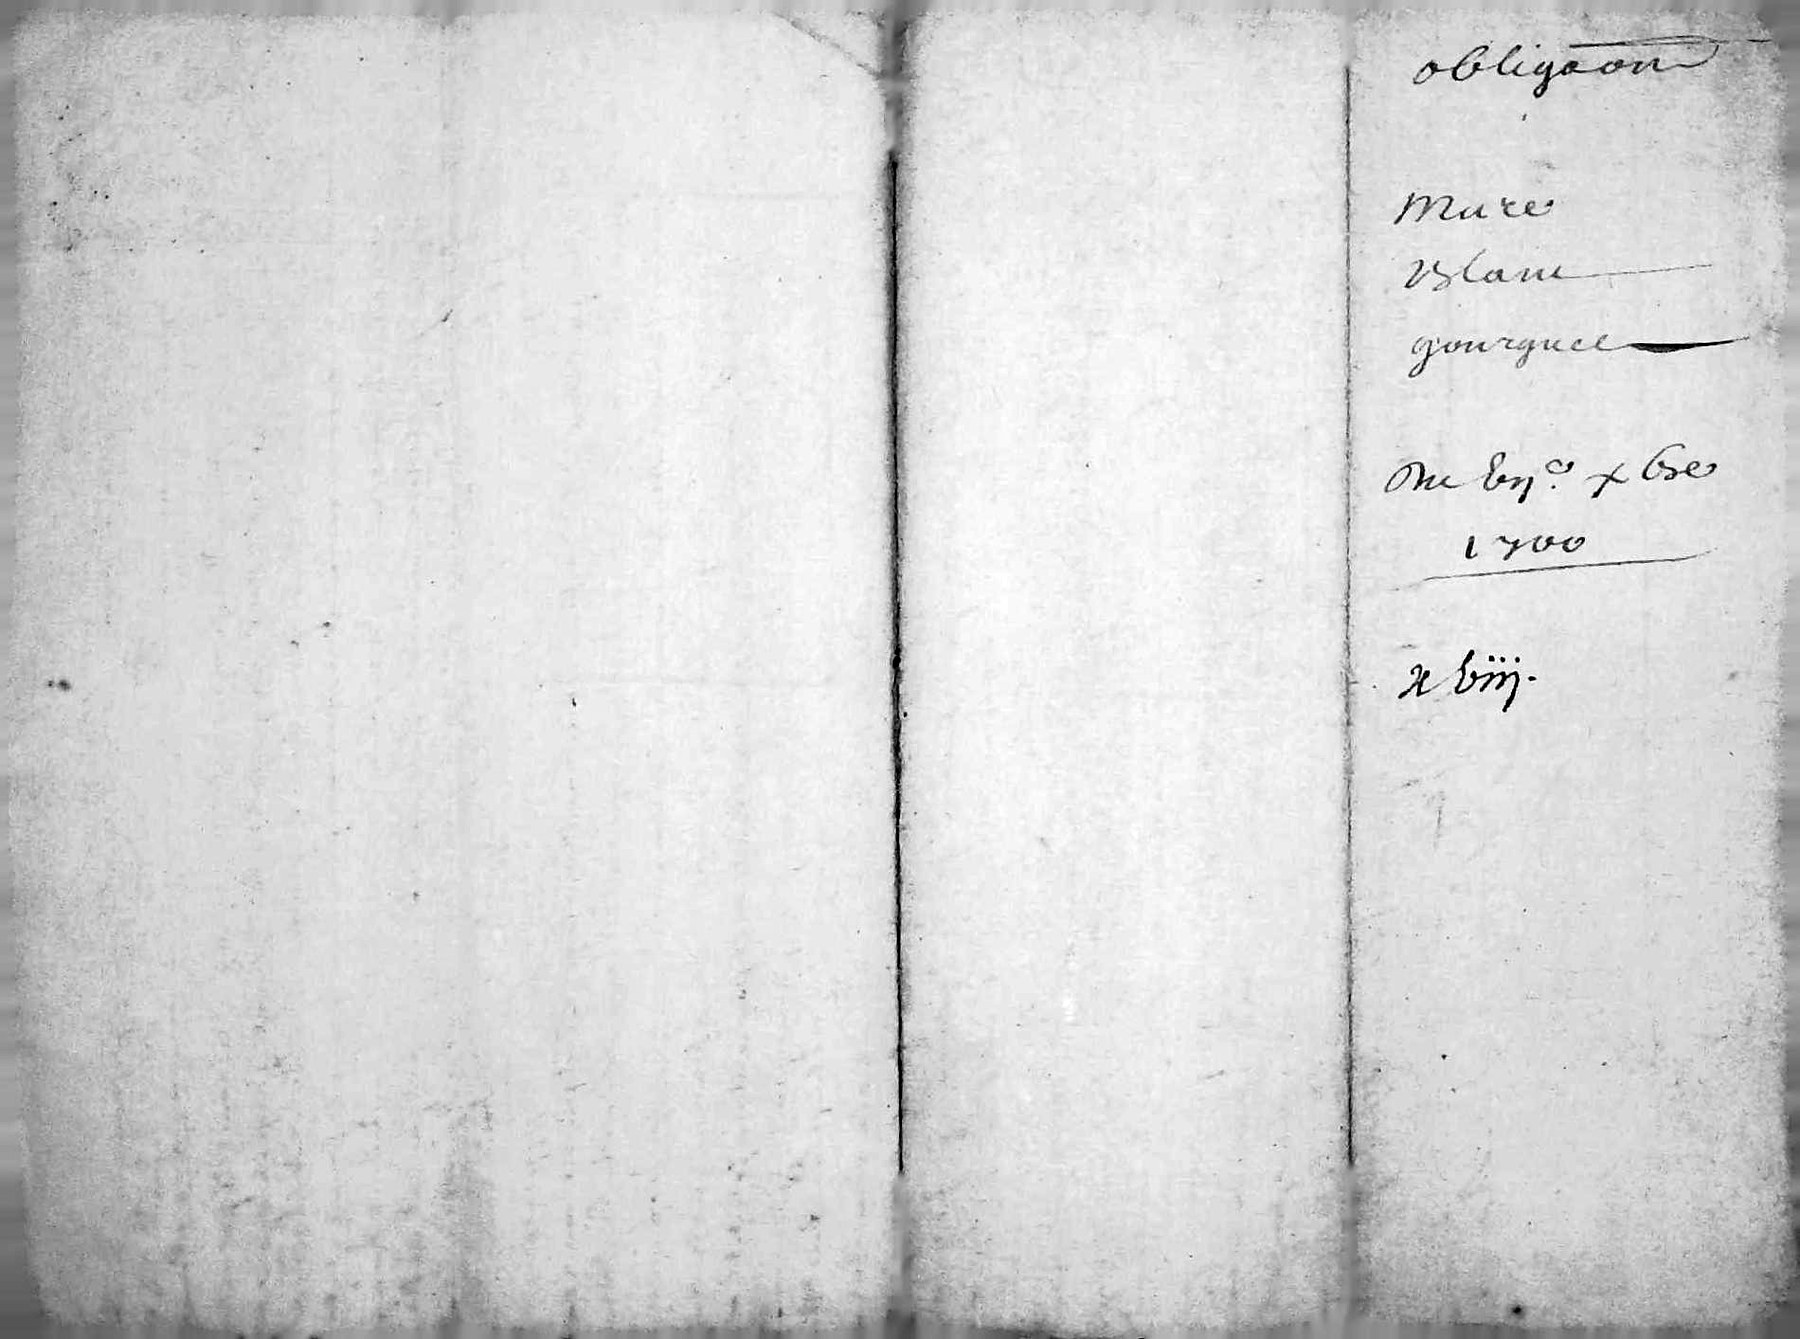 obligaon
Mure
Blanc
gourgues
Du bij^e xbre
1700
x biij.